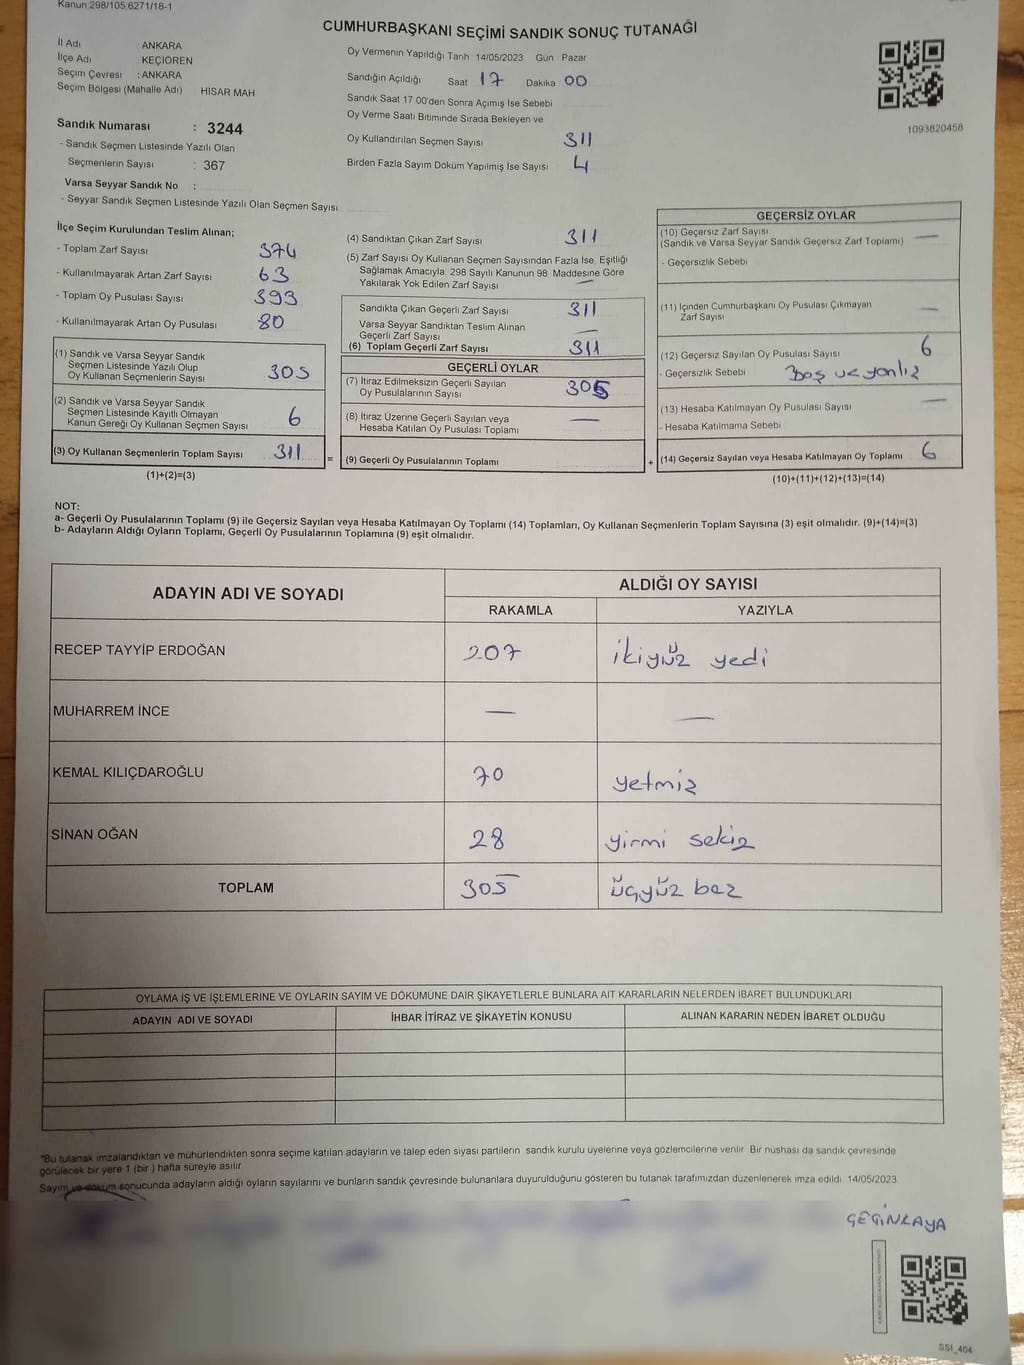 Kanun:298/105,6271/18-1
CUMHURBAŞKANI SEÇİMİ SANDIK SONUÇ TUTANAĞI
İl Adı : ANKARA
İlçe Adı : KEÇİÖREN
Seçim Çevresi : ANKARA
Seçim Bölgesi (Mahalle Adı) HİSAR MAH
Sandık Numarası : 3244
- Sandık Seçmen Listesinde Yazılı Olan
Seçmenlerin Sayısı : 367
Varsa Seyyar Sandık No :
- Seyyar Sandık Seçmen Listesinde Yazılı Olan Seçmen Sayısı
Oy Vermenin Yapıldığı Tarih 14/05/2023 Gün : Pazar
Sandığın Açıldığı Saat 17 Dakika 00
Sandık Saat 17 00'den Sonra Açımış İse Sebebi
Oy Verme Saati Bitiminde Sırada Bekleyen ve
Oy Kullandırılan Seçmen Sayısı 311
Birden Fazla Sayım Döküm Yapılmış İse Sayısı 4
1093820458
İlçe Seçim Kurulundan Teslim Alınan;
- Toplam Zarf Sayısı 374
- Kullanılmayarak Artan Zarf Sayısı 63
- Toplam Oy Pusulası Sayısı 393
- Kullanılmayarak Artan Oy Pusulası 80
(1) Sandık ve Varsa Seyyar Sandık
Seçmen Listesinde Yazılı Olup
Oy Kullanan Seçmenlerin Sayısı 305
(2) Sandık ve Varsa Seyyar Sandık
Seçmen Listesinde Kayıtlı Olmayan
Kanun Gereği Oy Kullanan Seçmen Sayısı 6
(3) Oy Kullanan Seçmenlerin Toplam Sayısı 311 =
(1)+(2)=(3)
(4) Sandıktan Çıkan Zarf Sayısı 311
(5) Zarf Sayısı Oy Kullanan Seçmen Sayısından Fazla İse, Eşitliği
Sağlamak Amacıyla, 298 Sayılı Kanunun 98. Maddesine Göre
Yakılarak Yok Edilen Zarf Sayısı —
Sandıkta Çıkan Geçerli Zarf Sayısı 311
Varsa Seyyar Sandıktan Teslim Alınan
Geçerli Zarf Sayısı —
(6) Toplam Geçerli Zarf Sayısı 311
GEÇERLİ OYLAR
(7) İtiraz Edilmeksizin Geçerli Sayılan
Oy Pusulasının Sayısı 305
(8) İtiraz Üzerine Geçerli Sayılan veya
Hesaba Katılan Oy Pusulası Toplamı —
(9) Geçerli Oy Pusulalarının Toplamı +
GEÇERSİZ OYLAR
(10) Geçersiz Zarf Sayısı —
(Sandık ve Varsa Seyyar Sandık Geçersiz Zarf Toplamı)
- Geçersizlik Sebebi
(11) İçinden Cumhurbaşkanı Oy Pusulası Çıkmayan
Zarf Sayısı —
(12) Geçersiz Sayılan Oy Pusulası Sayısı 6
- Geçersizlik Sebebi Boş ve yanlız
(13) Hesaba Katılmayan Oy Pusulası Sayısı —
- Hesaba Katılmama Sebebi
(14) Geçersiz Sayılan veya Hesaba Katılmayan Oy Toplamı 6
(10)+(11)+(12)+(13)=(14)
NOT:
a- Geçerli Oy Pusulalarının Toplamı (9) ile Geçersiz Sayılan veya Hesaba Katılmayan Oy Toplamı (14) Toplamları, Oy Kullanan Seçmenlerin Toplam Sayısına (3) eşit olmalıdır. (9)+(14)=(3)
b- Adayların Aldığı Oyların Toplamı, Geçerli Oy Pusulalarının Toplamına (9) eşit olmalıdır.
ADAYIN ADI VE SOYADI
ALDIĞI OY SAYISI
RAKAMLA YAZIYLA
RECEP TAYYİP ERDOĞAN 207 ikiyüz yedi
MUHARREM İNCE — —
KEMAL KILIÇDAROĞLU 70 yetmiz
SİNAN OĞAN 28 yirmi sekiz
TOPLAM 305 üçyüz bez
OYLAMA İŞ VE İŞLEMLERİNE VE OYLARIN SAYIM VE DÖKÜMÜNE DAİR ŞİKAYETLERLE BUNLARA AİT KARARLARIN NELERDEN İBARET BULUNDUKLARI
ADAYIN ADI VE SOYADI İHBAR İTİRAZ VE ŞİKAYETİN KONUSU ALINAN KARARIN NEDEN İBARET OLDUĞU
*Bu tutanak imzalandıktan ve mühürlendikten sonra seçime katılan adayların ve talep eden siyası partilerin sandık kurulu üyelerine veya gözlemcilerine verilir. Bir nushası da sandık çevresinde
görülecek bir yere 1 (bir) hafta süreyle asılır
Sayım ve döküm sonucunda adayların aldığı oyların sayılarını ve bunların sandık çevresinde bulunanlara duyurulduğunu gösteren bu tutanak tarafımızdan düzenlenerek imza edildi 14/05/2023
SSI_404